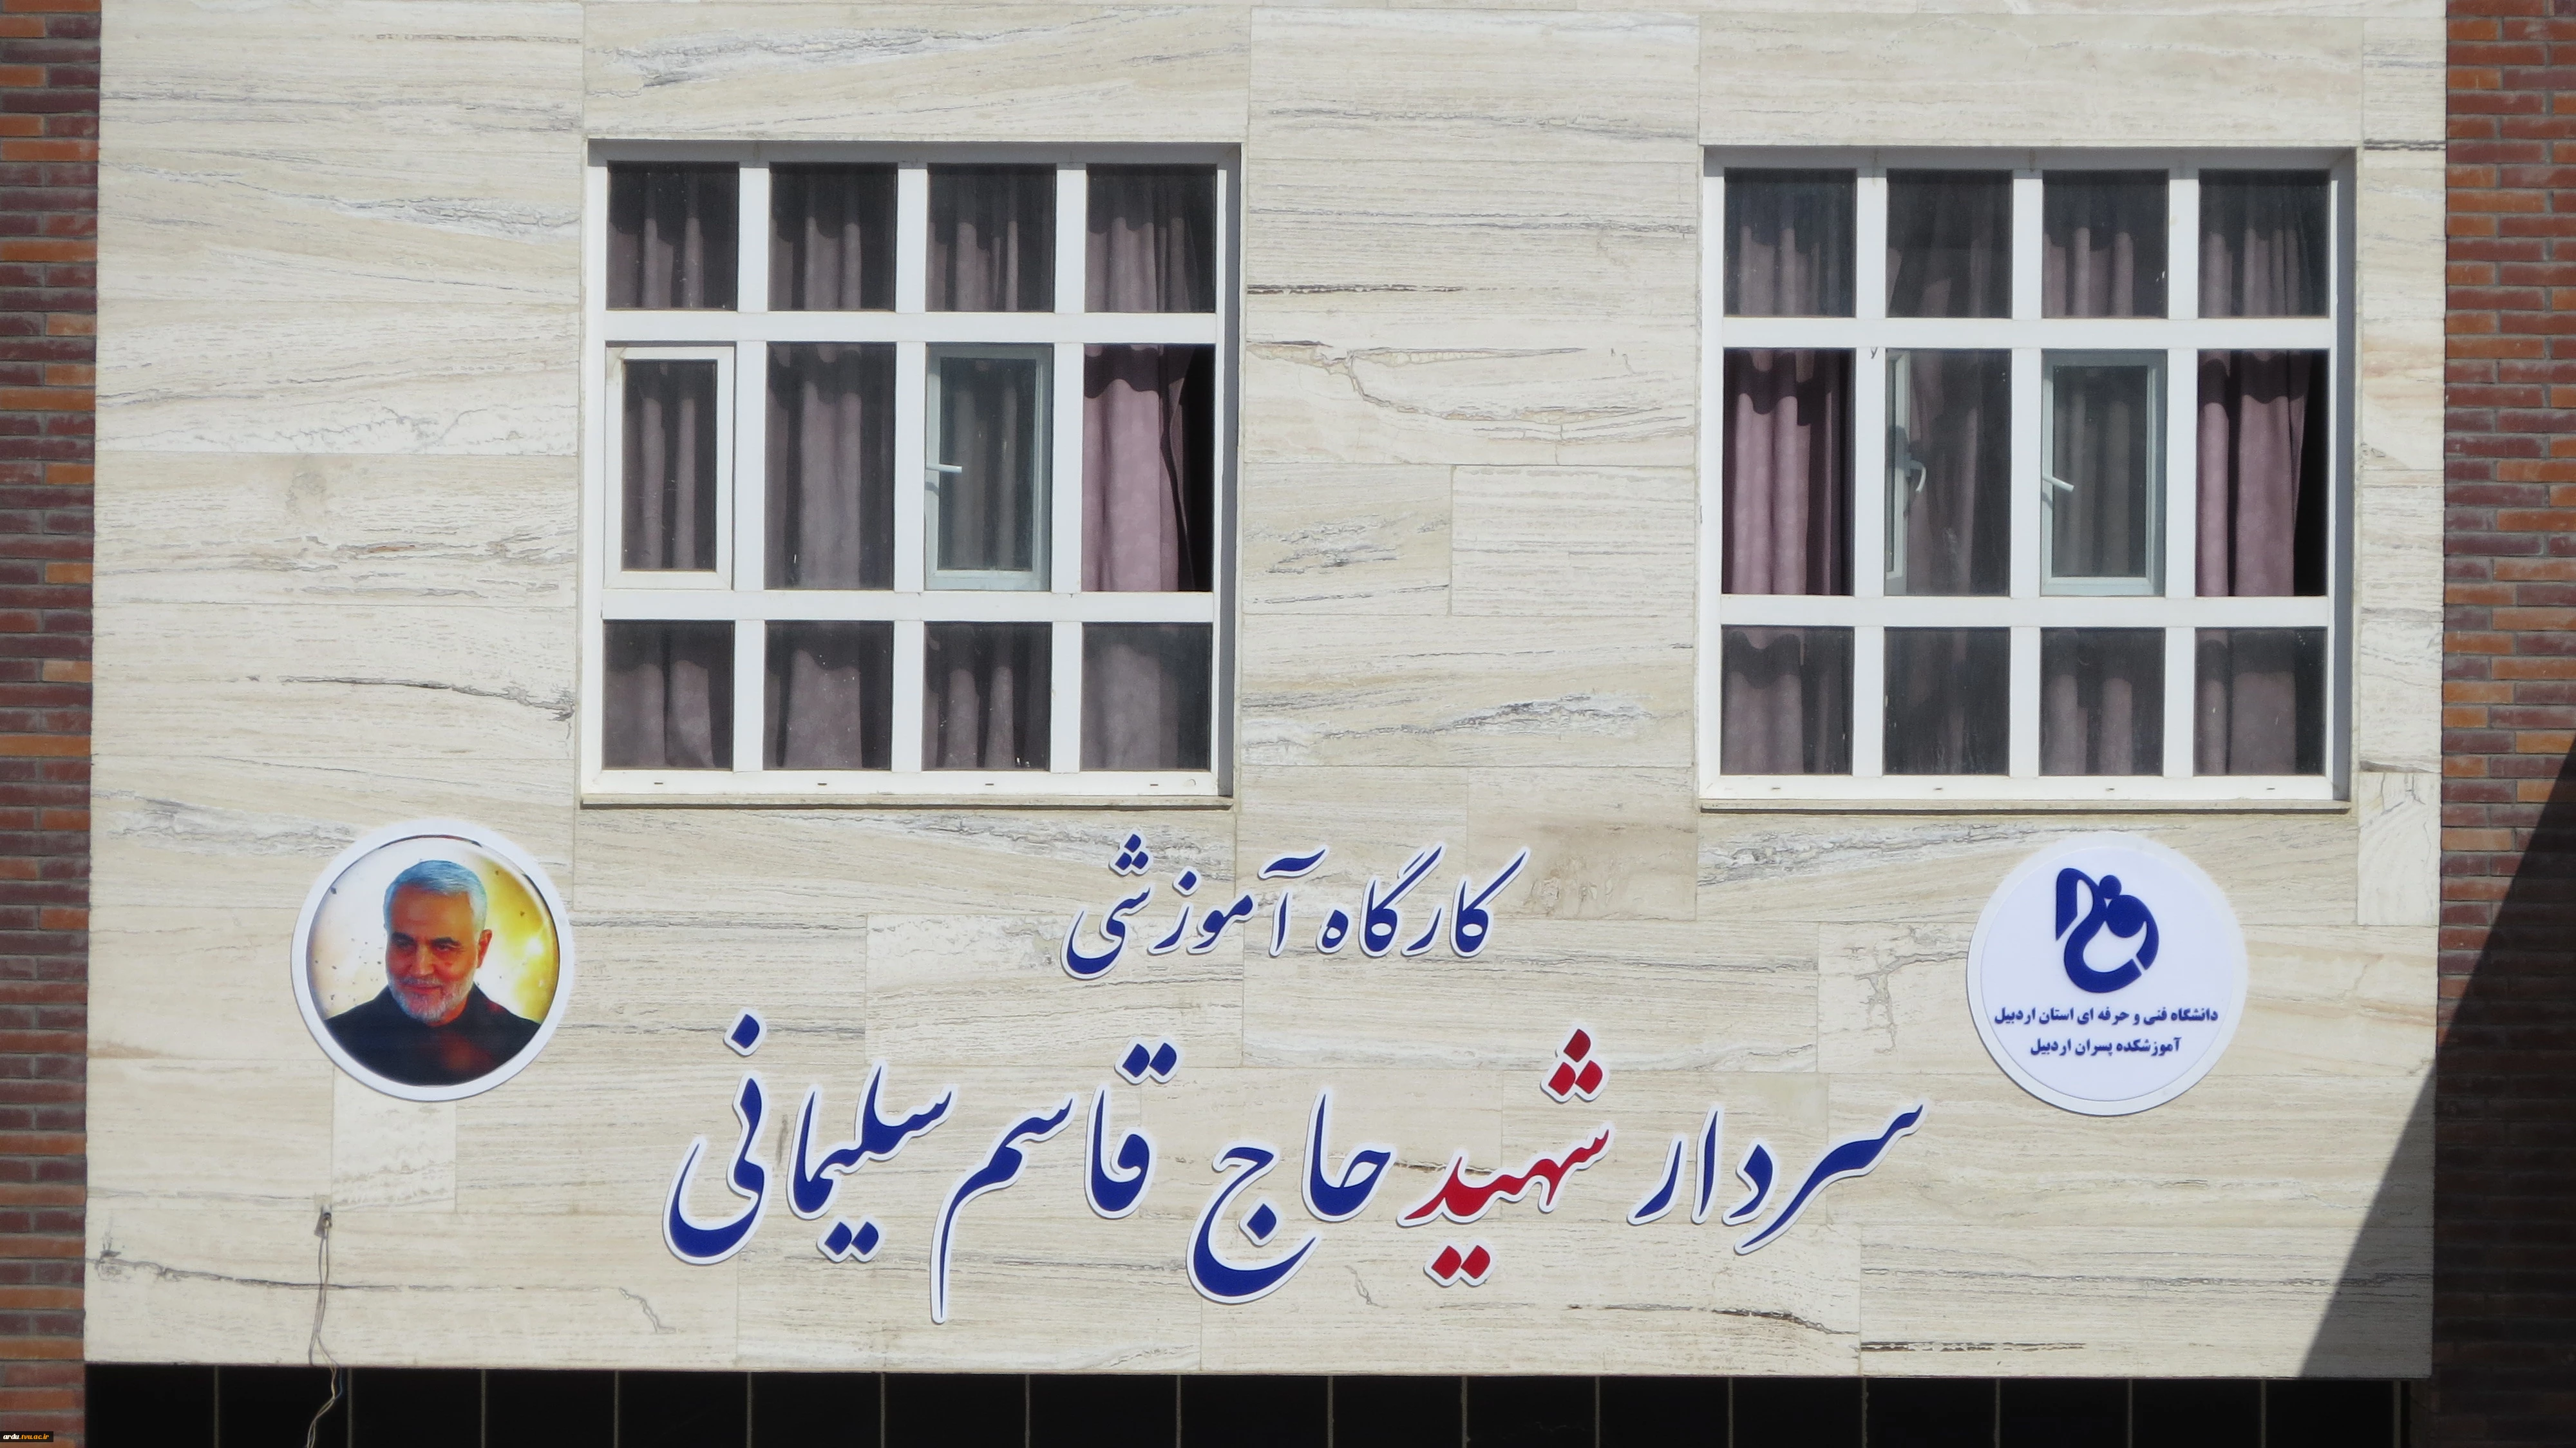 کارگاه آموزشی
سردار شهید حاج قاسم سلیمانی
دانشگاه فنی و حرفه ای استان اردبیل
آموزشکده پسران اردبیل
ardu.tvu.ac.ir